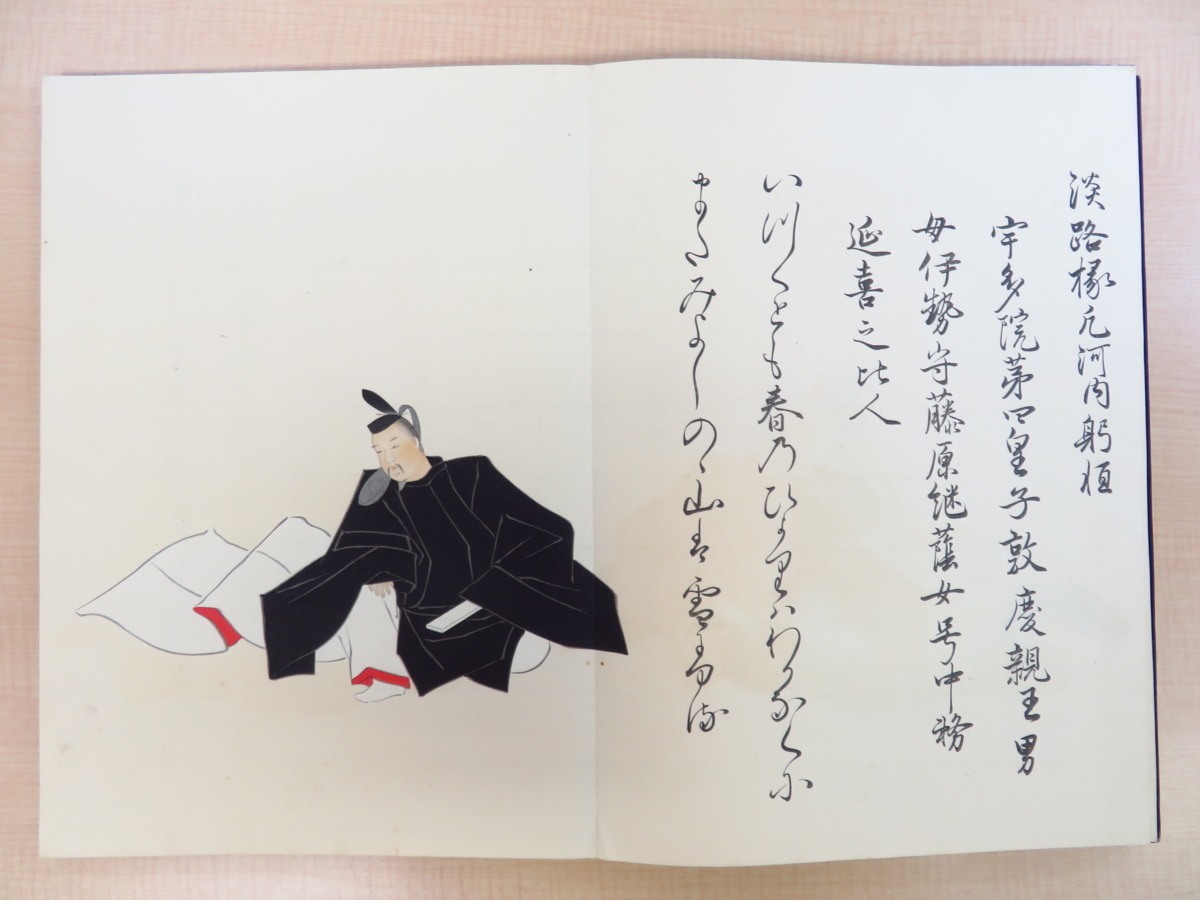 淡路掾凡河内躬恒
宇多院第四皇子敦慶親王男
母伊勢守藤原継蔭女号中務
延喜之比人
いつくとも春乃ひかりはわかなくに
またみよしのゝ山は雪ふる